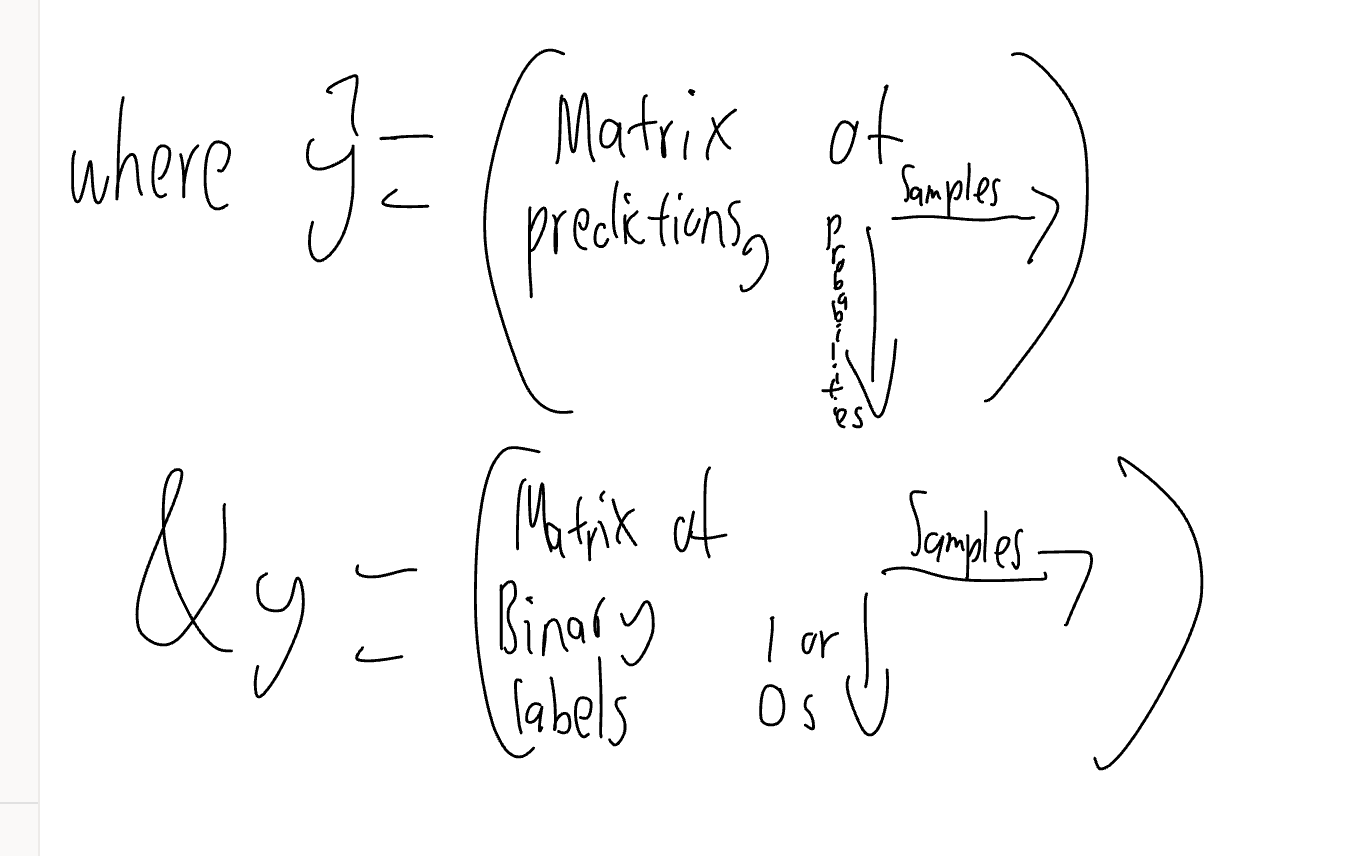 where ŷ = (Matrix of
Samples →
predictions,
Probabilities ↓)
& y = (Matrix of
Samples →
Binary
1 or ↓
labels
0s)